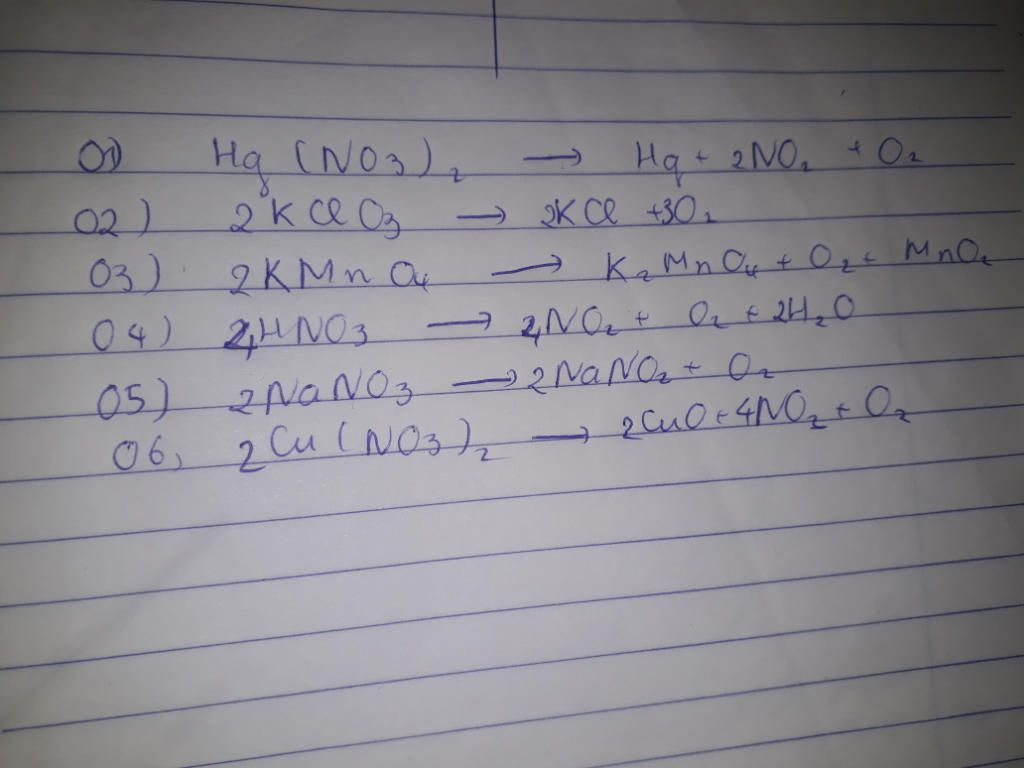 01) Hg (NO3)₂ → Hg + 2NO₂ + O₂
02) 2KClO3 → 2KCl + 3O₂
03) 2KMnO₄ → K₂MnO₄ + O₂ + MnO₂
04) 4HNO3 → 4NO₂ + O₂ + 2H₂O
05) 2NaNO3 → 2NaNO₂ + O₂
06, 2Cu(NO3)₂ → 2CuO + 4NO₂ + O₂